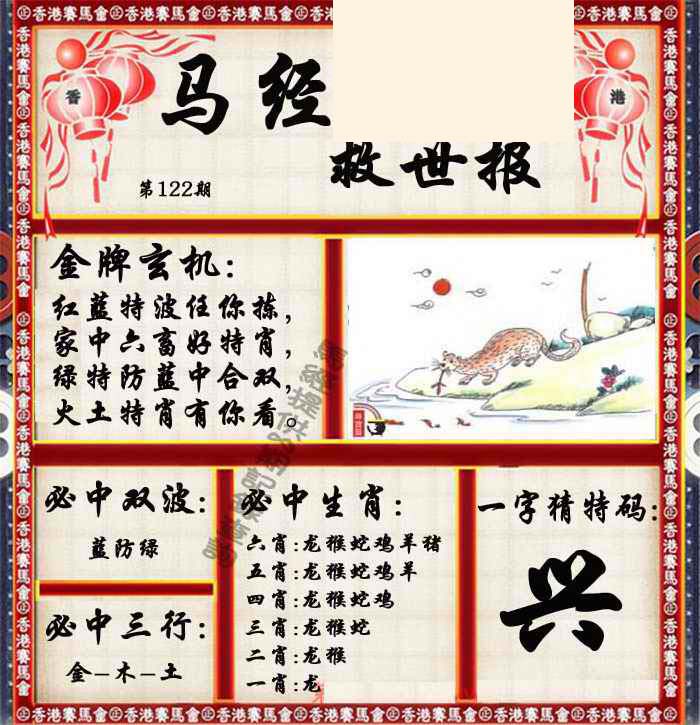 香港賽馬會
香
港
马经
救世报
第122期
金牌玄机:
红蓝特波任你拣,
家中六畜好特肖,
绿特防蓝中合双,
火土特肖有你看。
必中双波:
蓝防绿
必中三行:
金-木-土
必中生肖:
六肖:龙猴蛇鸡羊猪
五肖:龙猴蛇鸡羊
四肖:龙猴蛇鸡
三肖:龙猴蛇
二肖:龙猴
一肖:龙
一字猜特码:
兴